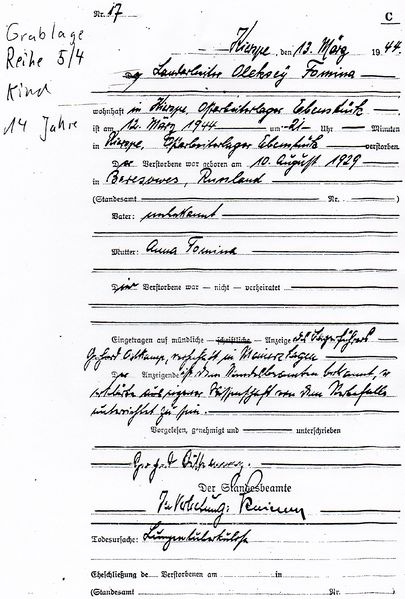 Grablage
Reihe 5/4
Kind
14 Jahre
Nr. 67
C
Kierspe, den 13. März 1944.
Landarbeiter Oleksey Fomina
wohnhaft in Kierspe, Ostarbeiterlager
ist am 12. März 1944 um 21 Uhr Minuten
in Kierspe, Ostarbeiterlager verstorben.
Der Verstorbene war geboren am 10. August 1929
in Beresowez, Russland
(Standesamt Nr. )
Vater: unbekannt
Mutter: Anna Fomina
Der Verstorbene war — nicht — verheiratet
Eingetragen auf mündliche — schriftliche — Anzeige des Lagerführers
Gerhard wohnhaft in Meinerzhagen
Der Anzeigende ist dem Standesbeamten bekannt, er
erklärte aus eigener Wissenschaft von dem Sterbefalle
unterrichtet zu sein.
Vorgelesen, genehmigt und unterschrieben
Gerhard
Der Standesbeamte
In Vertretung:
Todesursache: Lungentuberkulose
Eheschließung de Verstorbenen am in
(Standesamt Nr. )